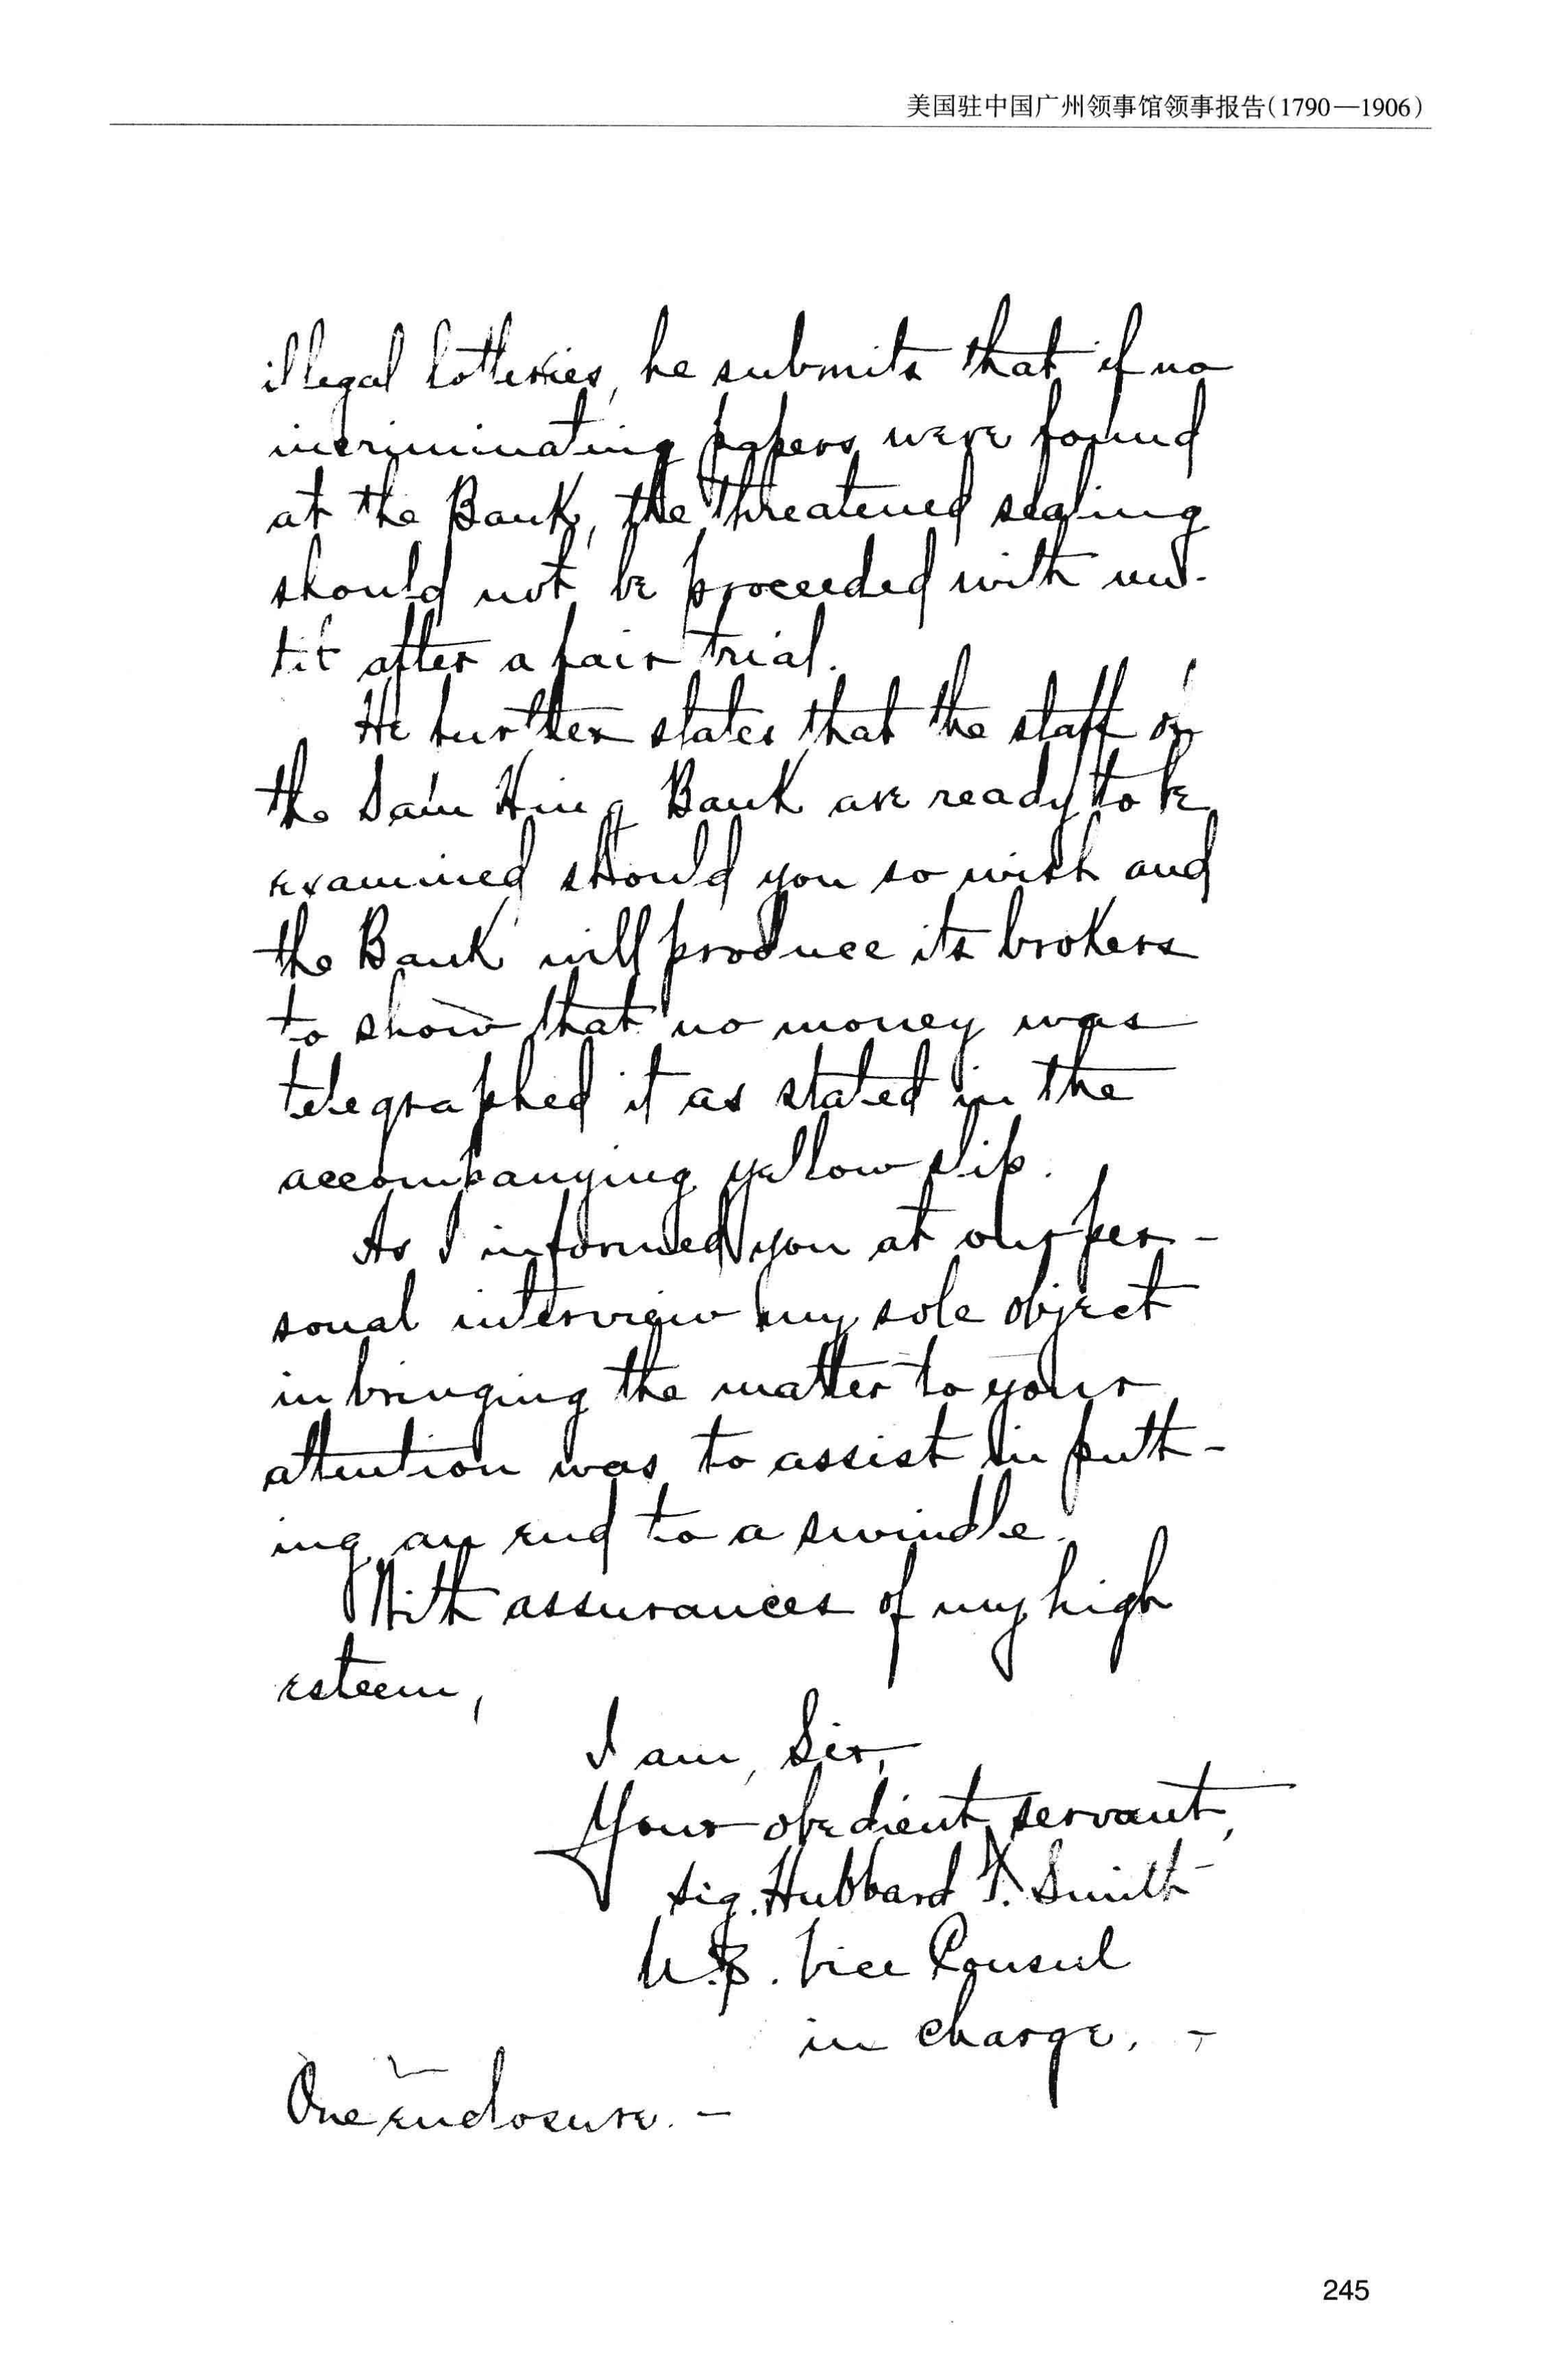 美国驻中国广州领事馆领事报告(1790—1906)
illegal lotteries, he submits that if no
incriminating papers were found
at the Bank, the threatened sealing
should not be proceeded with un-
til after a fair trial.
He further states that the staff of
the Sam Hing Bank are ready to be
examined should you so wish and
the Bank will produce its brokers
to show that no money was
telegraphed it as stated in the
accompanying yellow slip.
As I informed you at our per-
sonal interview my sole object
in bringing the matter to your
attention was to assist in putt-
ing an end to a swindle.
With assurances of my high
esteem,
I am, Sir,
Your obedient servant,
sig. Hubbard T. Smith
U.S. Vice Consul
in charge. -
One enclosure. -
245